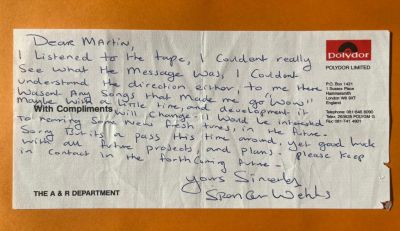 Dear Martin,
I Listened to the tape, I Couldent really
See what the Message was, I Couldent
understand the direction either, to me there
Wasent Any Songs that Made me go "Wow"
Maybe With a little time, and development it
With Compliments
will Change. I Would be intrested
to hearing Some new fresh tunes, in the future.
Sorry But its a pass this time around, yet good luck
with all future projects and plans. please keep
in Contact in the forthComing future.
Yours Sincerly
Spencer Wells
THE A & R DEPARTMENT
polydor
POLYDOR LIMITED
P.O. Box 1421
1 Sussex Place
Hammersmith
London W6 9XT
England
Telephone 081 846 8090
Telex
Fax 081-741 4901